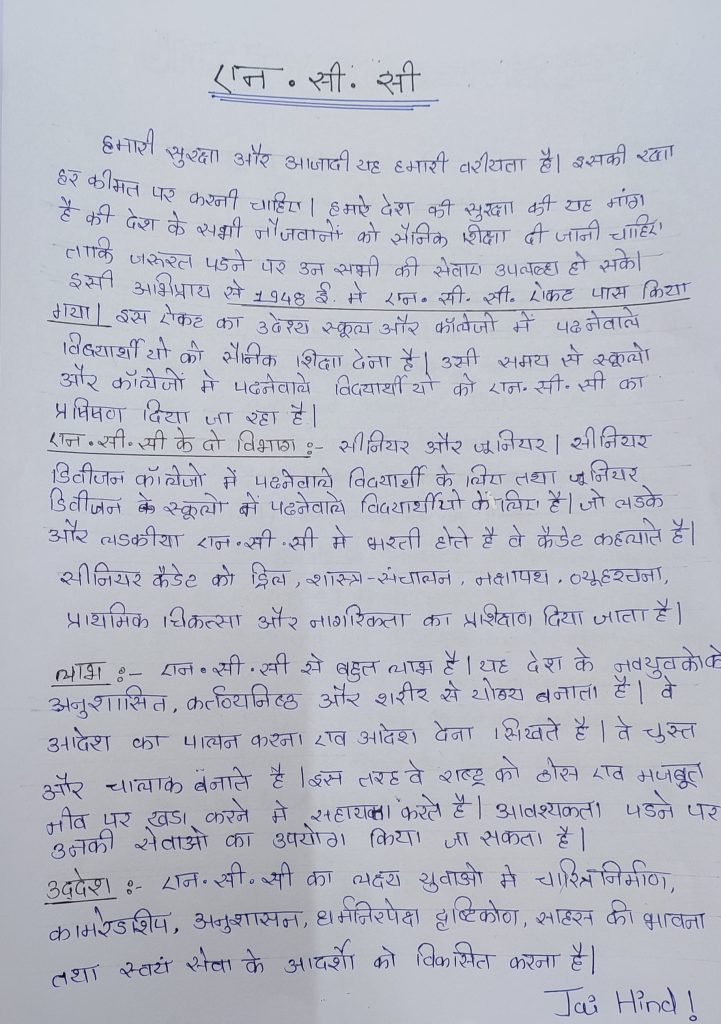 एन. सी. सी
हमारी सुरक्षा और आजादी यह हमारी वरीयता है। इसकी रक्षा
हर कीमत पर करनी चाहिए। हमारे देश की सुरक्षा की यह मांग
है की देश के सभी नौजवानों को सैनिक शिक्षा दी जानी चाहिए
ताकि जरूरत पडने पर उन सभी की सेवाए उपलब्ध हो सके।
इसी अभिप्राय से 1948 ई. मे एन. सी. सी. ऐकट पास किया
गया। इस ऐकट का उदेश्य स्कूल और कॉलेजो में पढनेवाले
विदयार्थीयो को सैनिक शिक्षा देना है। उसी समय से स्कूलो
और कॉलेजों मे पढनेवाले विदयार्थीयो को एन. सी. सी का
दिया जा रहा है।
एन. सी. सी के दो विभाग :- सीनियर और जूनियर। सीनियर
डिवीजन कॉलेजो में पढनेवाले विदयार्थी के लिए तथा जूनियर
डिवीजन के स्कूलो में पढनेवाले विदयार्थीयो के लिए है। जो लडके
और लडकीया एन. सी. सी मे भरती होते है वे कैडेट कहलाते है।
सीनियर कैडेट को ड्रिल, शास्त्र-संचालन, नक्षापथ, व्यूहरचना,
प्राथमिक चिकत्सा और नागरिकता का प्रशिक्षण दिया जाता है।
लाभ :- एन. सी. सी से बहुत लाभ है। यह देश के नवयुवकोको
अनुशासित, कर्तव्यनिष्ठ और शरीर से योग्य बनाता है। वे
आदेश का पालन करना एव आदेश देना सिखते है। वे चुस्त
और चालाक बनाते है। इस तरह वे राष्ट्र को ठोस एव मजबूत
नीव पर खडा करने मे सहायता करते है। आवश्यकता पडने पर
उनकी सेवाओ का उपयोग किया जा सकता है।
उद्देश :- एन. सी. सी का युवाओ मे चारित्र निर्माण,
कामरेडशिप, अनुशासन, धर्मनिरपेक्ष दृष्टिकोण, साहस की भावना
तथा स्वयं सेवा के आदर्शो को विकसित करना है।
Jai Hind!